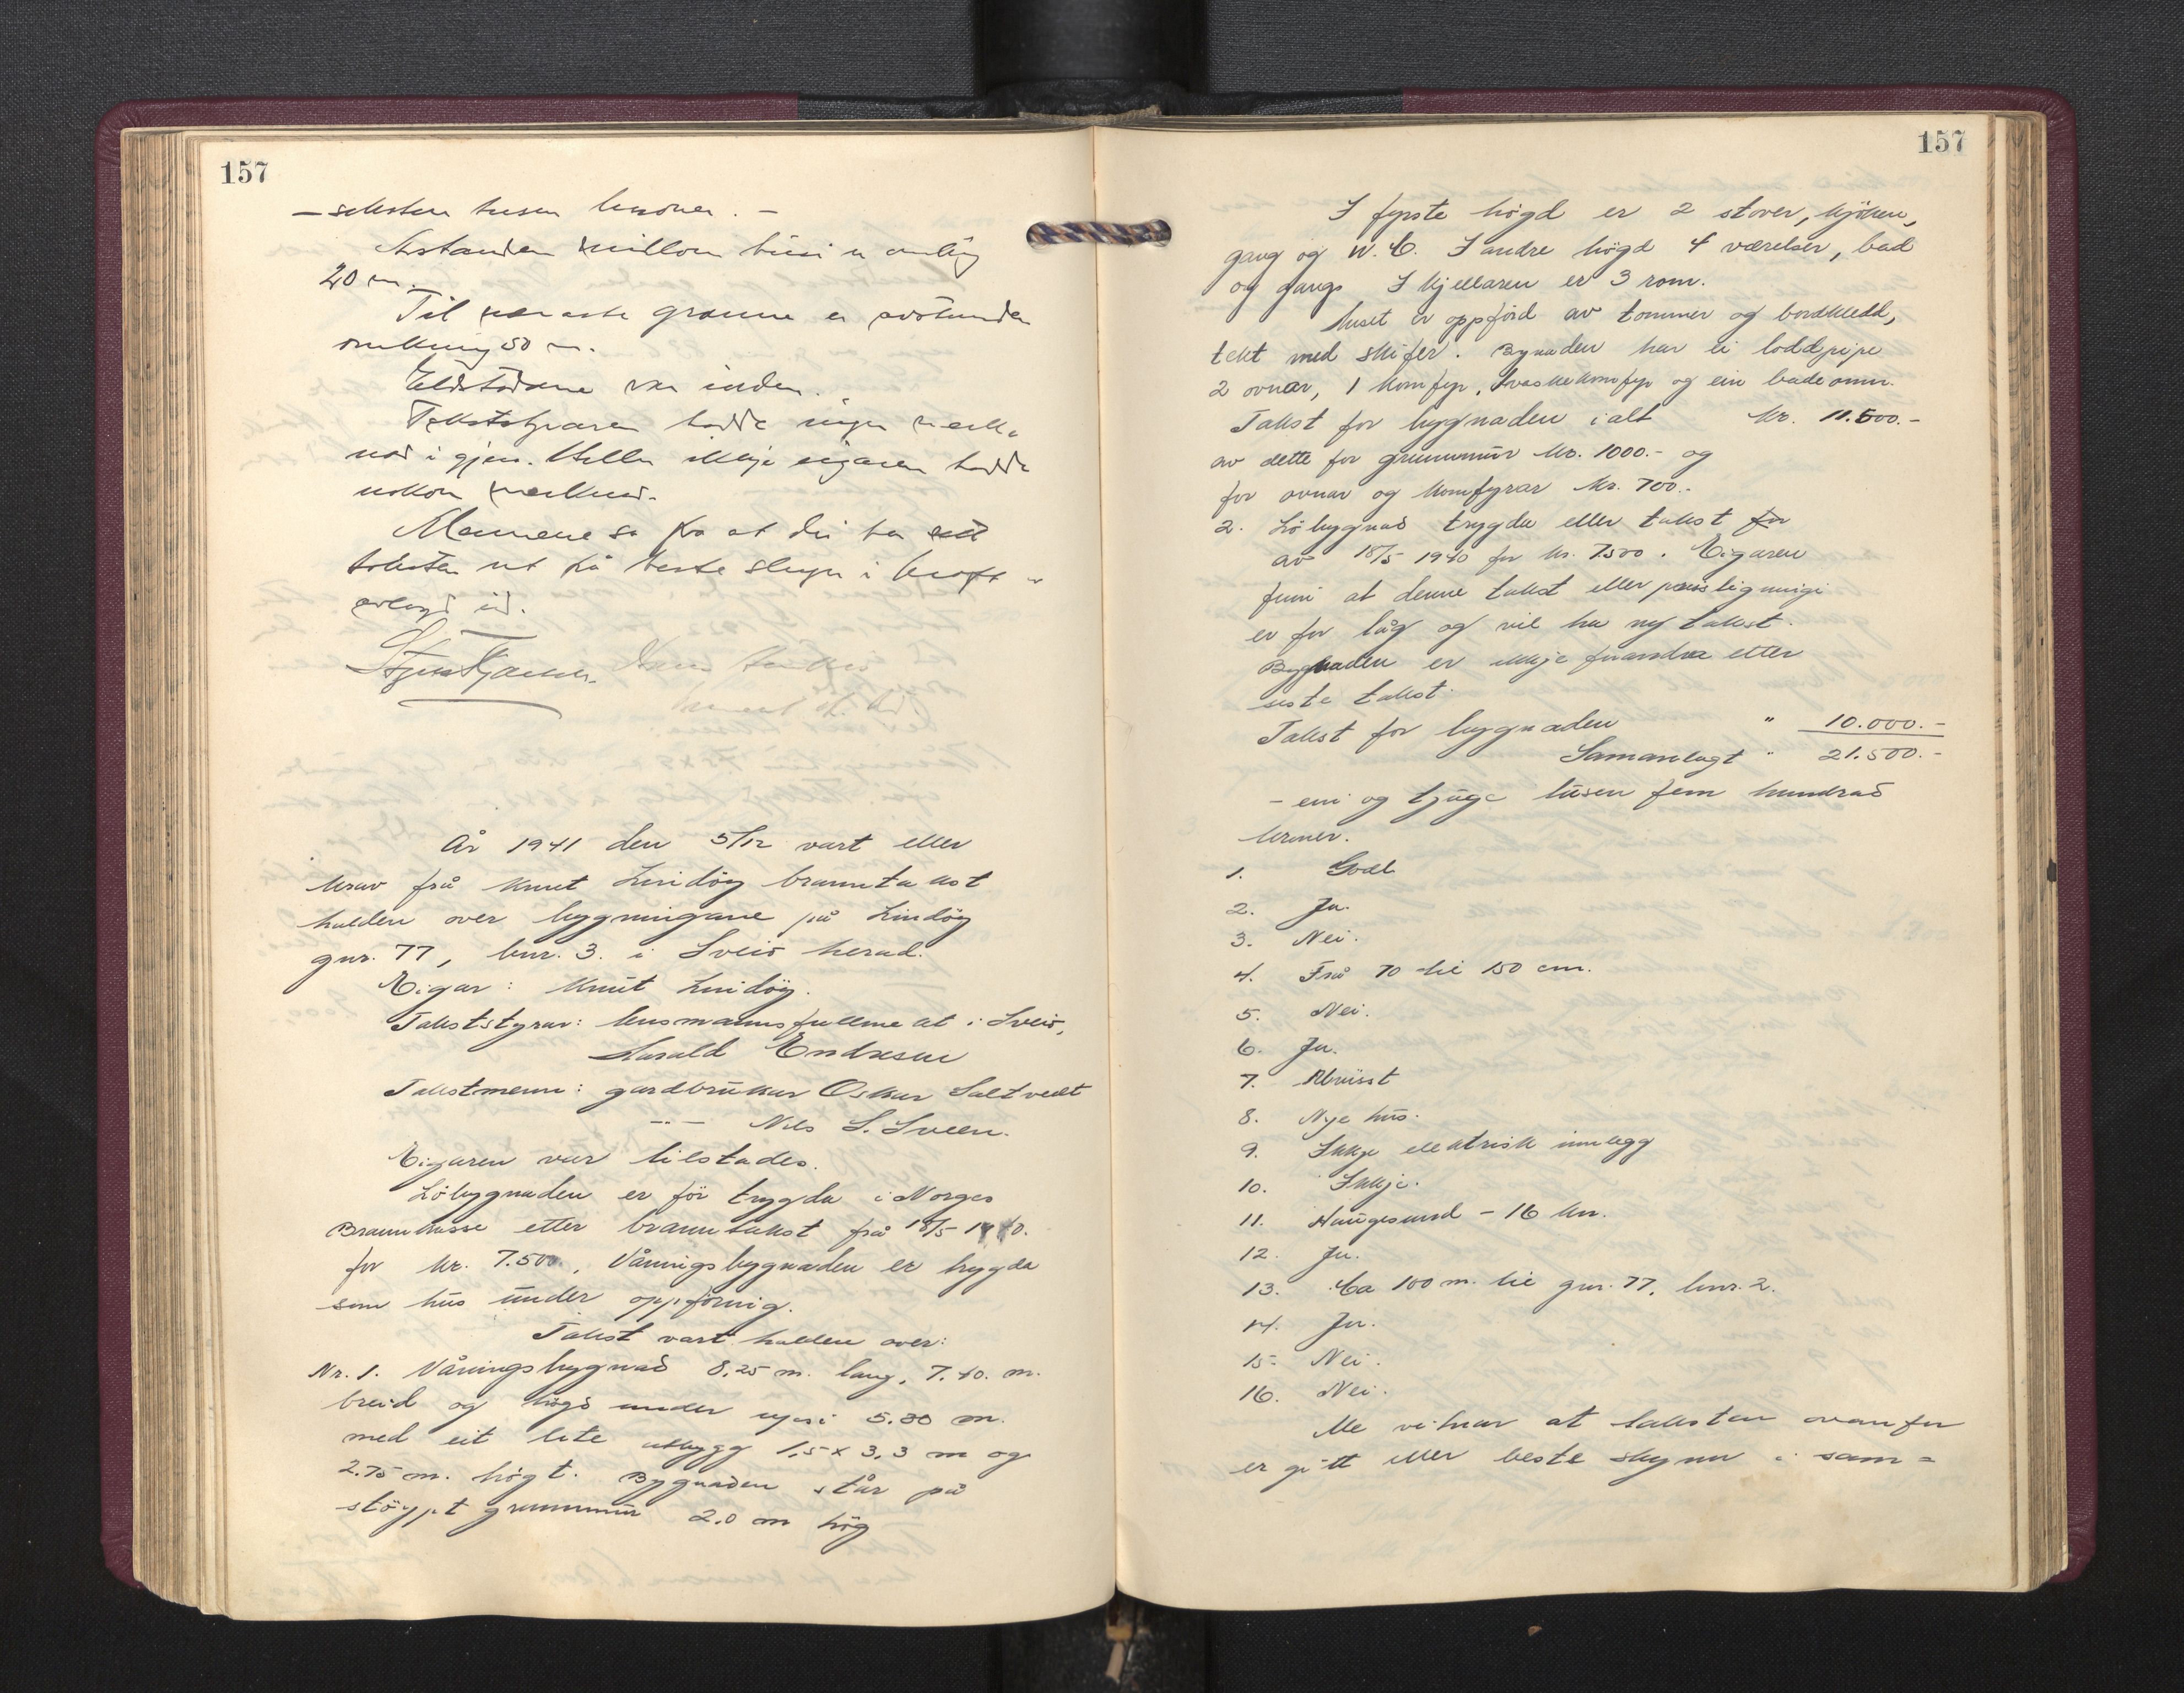 157
– seksten tusen kroner. –
Avstanden millom husi er omlag
20 m.
Til næraste granne er avstanden
omkring 50 m.
Eldstadene var i orden.
Takststyraren hadde ingen merk-
nad i gjen. Heller ikkje eigaren hadde
nokon merknad.
Mennene sa fra at dei har sett
taksten ut på beste skyn i kraft av
avlagd eid.
År 1941 den 5/12 vart etter
krav frå Knut Lindöy branntakst
halden over bygningane på Lindöy
gnr. 77, bnr. 3. i Sveio herad.
Eigar: Knut Lindöy.
Takststyrar: lensmannsfullmekt i Sveio,
Harald Endresen
Takstmenn: gardbrukar Oskar Saltvedt
–"– Nils S. Sveen.
Eigaren var tilstades.
Löbygnaden er för trygda i Norges
Brannkasse etter branntakst frå 18/5-1940.
for kr. 7.500., Våningsbygnaden er trygda
som hus under oppföring.
Takst vart halden over:
Nr. 1. Våningsbygnad 8,25 m. lang, 7.40. m.
breid og högd under upsi 5.80 m.
med eit lite utbygg 1,5 x 3,3 m og
2.75 m. högt. Bygnaden står på
stöypt grunnmur 2.0 m hög
157
I fyrste högd er 2 stover, kjöken,
gang og W.C. I andre högd 4 værelser, bad
og gang. I kjellaren er 3 rom.
Huset er oppförd av tommer og bordkledd,
tekt med skifer. Bynaden har ei loddpipe
2 ovnar, 1 komfyr, 1 vaskekomfyr og ein badeomn.
Takst for bygnaden i alt kr. 11.500.-
av dette for grunnmur kr. 1000.- og
for ovnar og komfyrar kr. 700.-
2. Löbygnad trygda etter takst for
av 18/5 1940 for kr. 7500. Eigaren
finn at denne takst etter prisstigningi
er for låg og vil ha ny takst.
Bygnaden er ikkje forandra etter
siste takst.
Takst for bygnaden " 10.000.-
Samanlagt " 21.500.-
– ein og tjuge tusen fem hundrad
kroner.
1. God
2. Ja.
3. Nei.
4. Frå 70 til 150 cm.
5. Nei.
6. Ja.
7.
8. Nye hus.
9. Ikkje elektrisk innlegg
10. Ikkje.
11. Haugesund – 16 km.
12. Ja.
13. Ca 100 m. til gnr. 77, bnr. 2.
14. Ja.
15. Nei.
16. Nei.
Me vitnar at taksten ovanfor
er gitt etter beste skynn i sam=